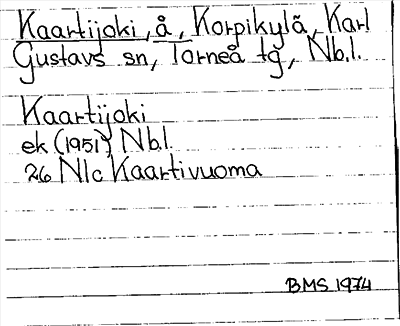 Kaartijoki, å, Korpikylä, Karl
Gustavs sn, Torneå tg, Nb.l.
Kaartijoki
ek (1951) Nb.l.
26 Nlc Kaartivuoma
BMS 1974